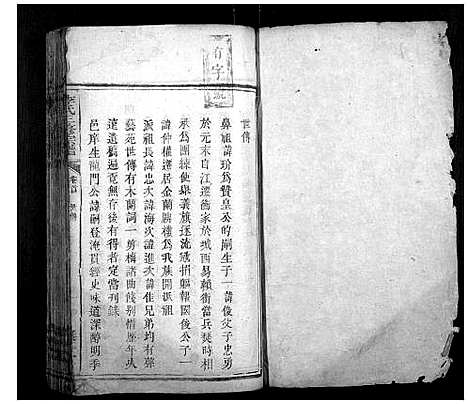 有字號
世傳
鼻祖諱瑜爲贊皇公的嗣生子一諱俊父子忠勇
於元末自江遷德家於城西易賴街當兵燹時相
承爲團練使舉義旗逐流寇捐軀報國後公子一
諱仲權遷居金蘭勝樓爲我族開派祖
派祖長諱忠次諱海次諱進次諱佳兄弟均有聲
藝苑世傳有木蘭詞一剪梅諸曲餞別惜歷年久
遠遺稿遍覓無存後有得者定當刊錄
邑庠生 門公諱嗣登淹貫經史味道深醇明季
氏